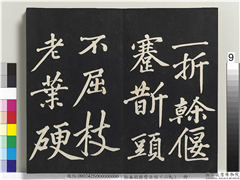 一折榦偃
蹇斮頭
不屈枝
老葉硬
9